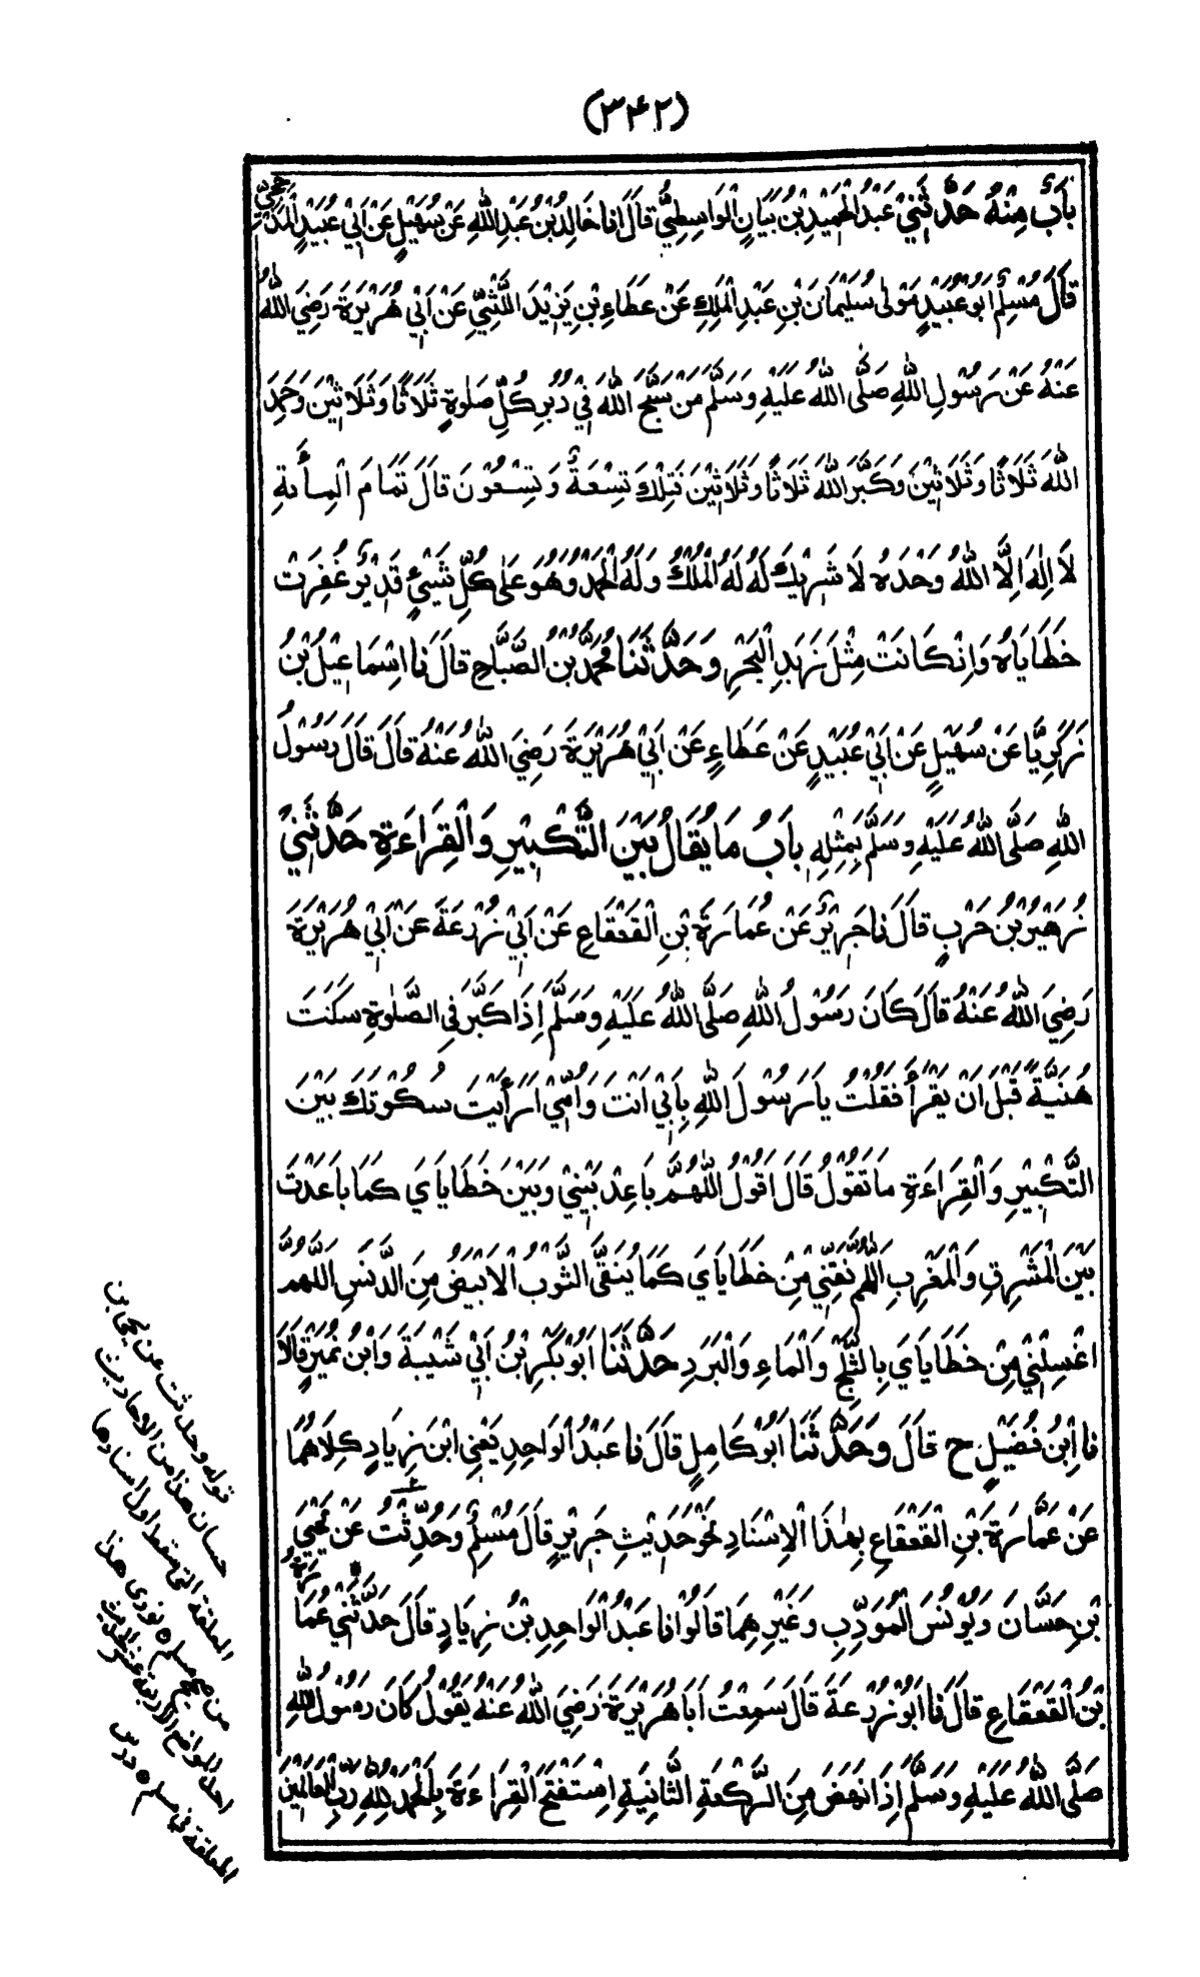 (٣٤٢)
بَابٌ مِنْهُ حَدَّثَنِيْ عَبْدُ الْحَمِيْدِ بْنُ بَيَانٍ الْوَاسِطِيُّ قَالَ اَنا خَالِدُ بْنُ عَبْدِ اللّٰهِ عَنْ سُهَيْلٍ عَنْ اَبِيْ عُبَيْدٍ الْمَذْحِجِيّ
قَالَ مُسْلِمٌ اَبُوْ عُبَيْدٍ مَوْلٰى سُلَيْمَانَ بْنِ عَبْدِ الْمَلِكِ عَنْ عَطَاءِ بْنِ يَزِيْدَ اللَّيْثِيِّ عَنْ اَبِيْ هُرَيْرَةَ رَضِيَ اللّٰهُ
عَنْهُ عَنْ رَسُوْلِ اللّٰهِ صَلَّى اللّٰهُ عَلَيْهِ وَسَلَّمَ مَنْ سَبَّحَ اللّٰهَ فِيْ دُبُرِ كُلِّ صَلٰوةٍ ثَلَاثًا وَثَلَاثِيْنَ وَحَمِدَ
اللّٰهَ ثَلَاثًا وَثَلَاثِيْنَ وَكَبَّرَ اللّٰهَ ثَلَاثًا وَثَلَاثِيْنَ فَتِلْكَ تِسْعَةٌ وَتِسْعُوْنَ قَالَ تَمَامَ الْمِأَئةِ
لَا اِلٰهَ اِلَّا اللّٰهُ وَحْدَهُ لَا شَرِيْكَ لَهُ لَهُ الْمُلْكُ وَلَهُ الْحَمْدُ وَهُوَ عَلٰى كُلِّ شَيْءٍ قَدِيْرٌ غُفِرَتْ
خَطَايَاهُ وَاِنْ كَانَتْ مِثْلَ زَبَدِ الْبَحْرِ وَحَدَّثَنَا مُحَمَّدُ بْنُ الصَّبَّاحِ قَالَ نا اِسْمَاعِيْلُ بْنُ
زَكَرِيَّا عَنْ سُهَيْلٍ عَنْ اَبِيْ عُبَيْدٍ عَنْ عَطَاءٍ عَنْ اَبِيْ هُرَيْرَةَ رَضِيَ اللّٰهُ عَنْهُ قَالَ قَالَ رَسُوْلُ
اللّٰهِ صَلَّى اللّٰهُ عَلَيْهِ وَسَلَّمَ بِمِثْلِهِ بَابُ مَا يُقَالُ بَيْنَ التَّكْبِيْرِ وَالْقِرَاءَةِ حَدَّثَنِيْ
زُهَيْرُ بْنُ حَرْبٍ قَالَ نا جَرِيْرٌ عَنْ عُمَارَةَ بْنِ الْقَعْقَاعِ عَنْ اَبِيْ زُرْعَةَ عَنْ اَبِيْ هُرَيْرَةَ
رَضِيَ اللّٰهُ عَنْهُ قَالَ كَانَ رَسُوْلُ اللّٰهِ صَلَّى اللّٰهُ عَلَيْهِ وَسَلَّمَ اِذَا كَبَّرَ فِي الصَّلٰوةِ سَكَتَ
هُنَيَّةً قَبْلَ اَنْ يَقْرَأَ فَقُلْتُ يَا رَسُوْلَ اللّٰهِ بِاَبِيْ اَنْتَ وَاُمِّيْ اَرَأَيْتَ سُكُوْتَكَ بَيْنَ
التَّكْبِيْرِ وَالْقِرَاءَةِ مَا تَقُوْلُ قَالَ اَقُوْلُ اللّٰهُمَّ بَاعِدْ بَيْنِيْ وَبَيْنَ خَطَايَايَ كَمَا بَاعَدْتَ
بَيْنَ الْمَشْرِقِ وَالْمَغْرِبِ اَللّٰهُمَّ نَقِّنِيْ مِنْ خَطَايَايَ كَمَا يُنَقَّى الثَّوْبُ الْاَبْيَضُ مِنَ الدَّنَسِ اَللّٰهُمَّ
اغْسِلْنِيْ مِنْ خَطَايَايَ بِالثَّلْجِ وَالْمَاءِ وَالْبَرَدِ حَدَّثَنَا اَبُوْ بَكْرِ بْنُ اَبِيْ شَيْبَةَ وَابْنُ نُمَيْرٍ قَالَا
نا اِبْنُ فُضَيْلٍ ح قَالَ وَحَدَّثَنَا اَبُوْ كَامِلٍ قَالَ نا عَبْدُ الْوَاحِدِ يَعْنِي ابْنَ زِيَادٍ كِلَاهُمَا
عَنْ عَمَّارَةَ بْنِ الْقَعْقَاعِ بِهٰذَا الْاِسْنَادِ نَحْوَ حَدِيْثِ جَرِيْرٍ قَالَ مُسْلِمٌ وَحُدِّثْتُ عَنْ يَحْيَى
بْنِ حَسَّانَ وَيُوْنُسَ الْمُؤَدِّبِ وَغَيْرِهِمَا قَالُوْا نا عَبْدُ الْوَاحِدِ بْنُ زِيَادٍ قَالَ حَدَّثَنِيْ عُمَارَةُ
بْنُ الْقَعْقَاعِ قَالَ نا اَبُوْ زُرْعَةَ قَالَ سَمِعْتُ اَبَا هُرَيْرَةَ رَضِيَ اللّٰهُ عَنْهُ يَقُوْلُ كَانَ رَسُوْلُ اللّٰهِ
صَلَّى اللّٰهُ عَلَيْهِ وَسَلَّمَ اِذَا نَهَضَ مِنَ الرَّكْعَةِ الثَّانِيَةِ اِسْتَفْتَحَ الْقِرَاءَةَ بِاَلْحَمْدُ لِلّٰهِ رَبِّ الْعَالَمِيْنَ
قوله وحدثت عن يحيى بن
حسان هذا من الاحاديث
المعلقة التي سقط اول اسنادها
من صحيح مسلم ٥ نووى هذا
احد المواضع الاربعة عشر
المعلقة في مسلم ٥